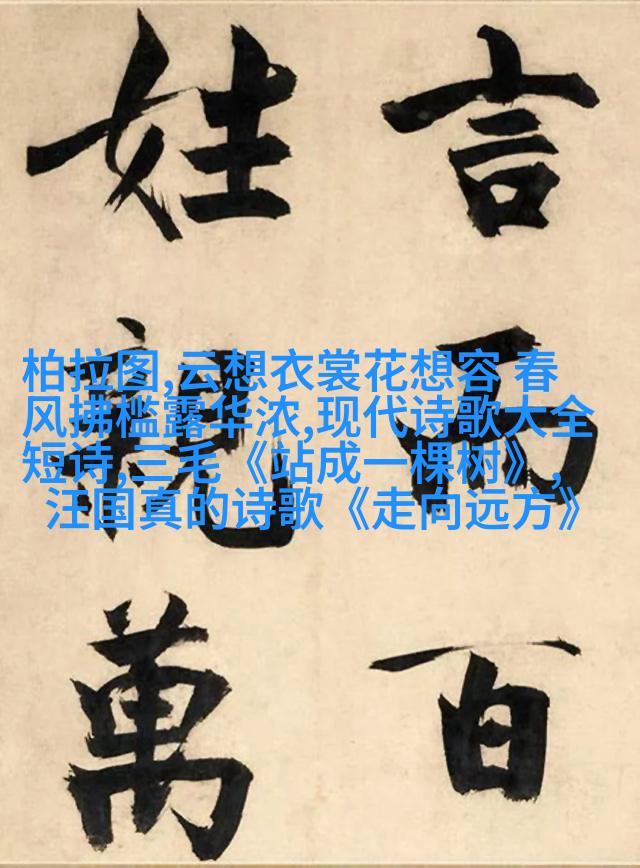 言而百
姓親萬
柏拉图,云想衣裳花想容 春
风拂槛露华浓,现代诗歌大全
短诗,三毛《站成一棵树》,
汪国真的诗歌《走向远方》